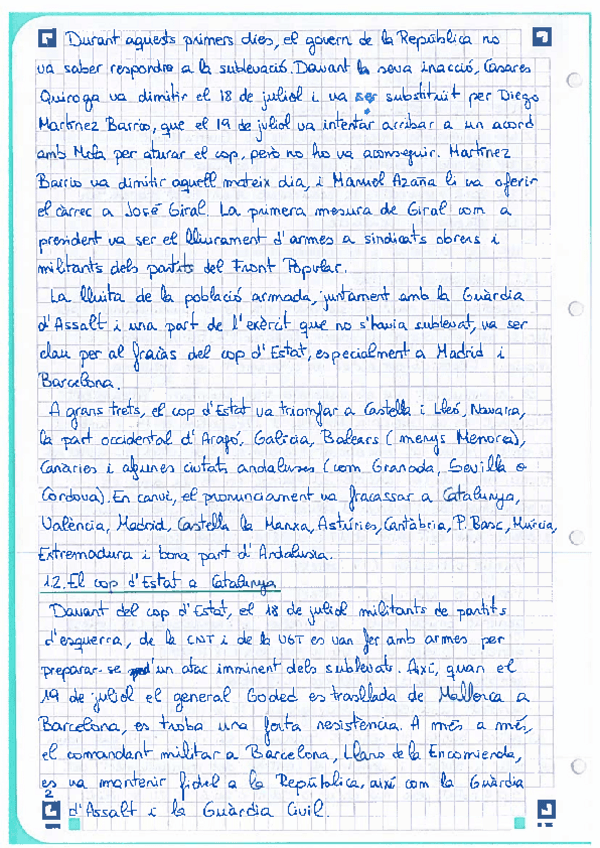 Durant aquests primers dies, el govern de la República no
va saber respondre a la sublevació. Davant la seva inacció, Casares
Quiroga va dimitir el 18 de juliol i va ser substituït per Diego
Martínez Barrio, que el 19 de juliol va intentar arribar a un acord
amb Mola per aturar el cop, però no ho va aconseguir. Martínez
Barrio va dimitir aquell mateix dia, i Manuel Azaña li va oferir
el càrrec a José Giral. La primera mesura de Giral com a
president va ser el lliurament d'armes a sindicats obrers i
militants dels partits del Front Popular.
La lluita de la població armada, juntament amb la Guàrdia
d'Assalt i una part de l'exèrcit que no s'havia sublevat, va ser
clau per al fracàs del cop d'Estat, especialment a Madrid i
Barcelona.
A grans trets, el cop d'Estat va triomfar a Castella i Lleó, Navarra,
la part occidental d'Aragó, Galícia, Balears (menys Menorca),
Canàries i algunes ciutats andaluses (com Granada, Sevilla o
Còrdova). En canvi, el pronunciament va fracassar a Catalunya,
València, Madrid, Castella la Manxa, Astúries, Cantàbria, P. Basc, Múrcia,
Extremadura i bona part d'Andalusia.
1.2. El cop d'Estat a Catalunya
Davant del cop d'Estat, el 18 de juliol militants de partits
d'esquerra, de la CNT i de la UGT es van fer amb armes per
preparar-se d'un atac imminent dels sublevats. Així, quan el
19 de juliol el general Goded es trasllada de Mallorca a
Barcelona, es troba una forta resistència. A més a més,
el comandant militar a Barcelona, Llano de la Encomienda,
es va mantenir fidel a la República, així com la Guàrdia
2
d'Assalt i la Guàrdia Civil.